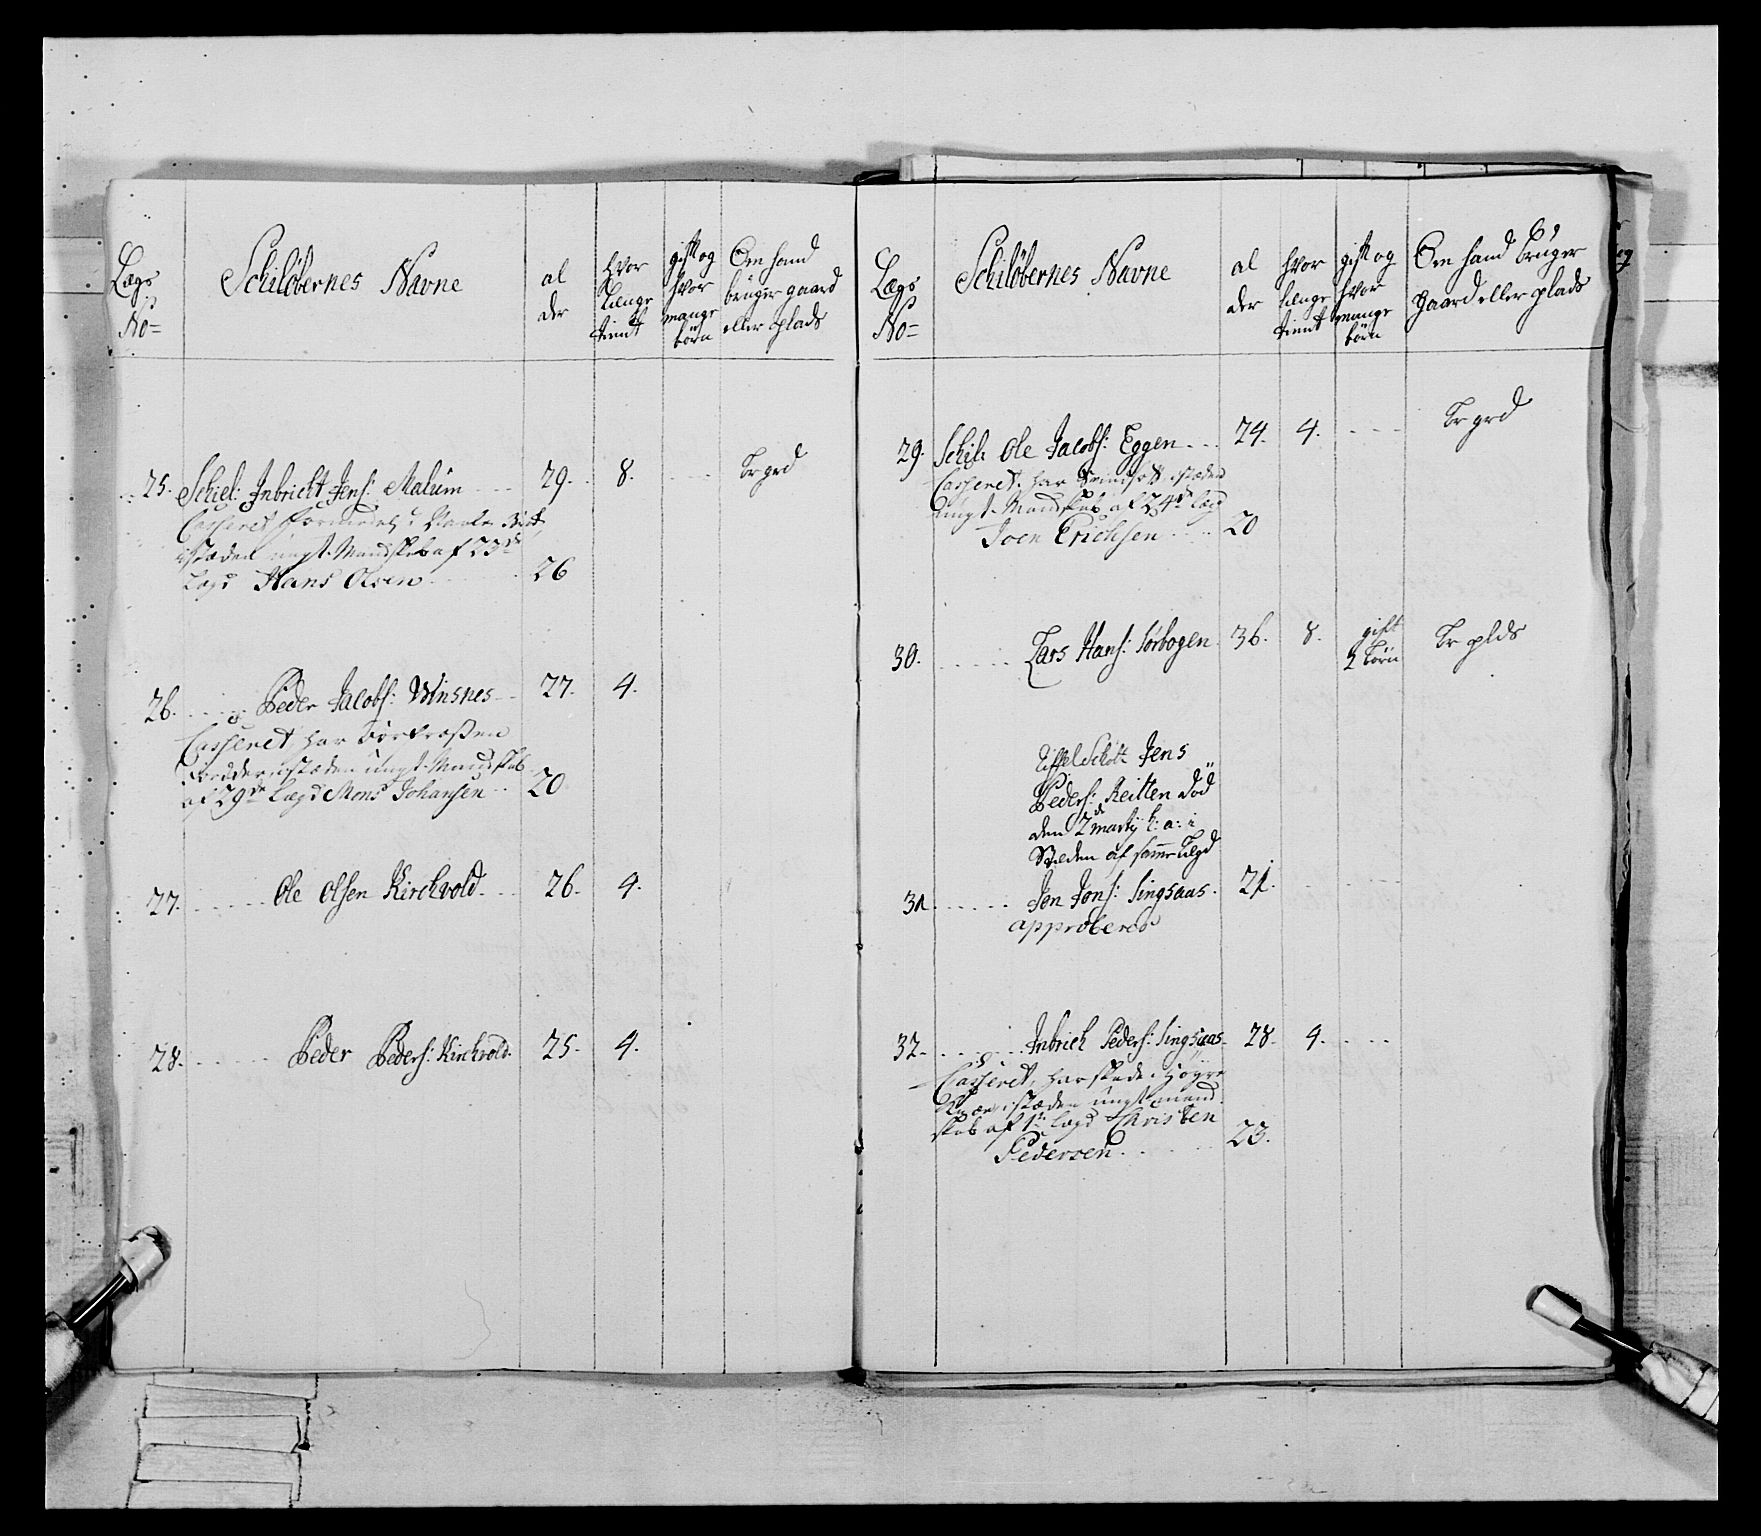 Lægs No=
Schilöbernes Navne
al der
hvor længe tient
gift og hvor mange börn
Om hand bruger gaard eller plads
25. Schiel: Inbricht Jens: Malum 29. 8. br grd
Casseret
istæden ungt Mandskab af 23de
Lægd Hans Olsen 26
26. Peder Jacobs: Winsnes 27. 4.
Casseret har
istæden ungt Mandskab
af 29de Lægd Mons Johansen 20
27. Ole Olsen Kirchvold 26. 4.
28. Peder Peders: Kirchvold. 25. 4.
Lægs No=
Schilöbernes Navne
al der
hvor længe tient
gift og hvor mange börn
Om hand bruger gaard eller plads
29. Schil: Ole Jacobs: Eggen 24. 4. br grd
Casseret, har istæden
ungt Mandskab af 24de Lægd
Joen Erichsen 20
30. Lars Hans: Sörbogen 36. 8. gift 2 börn br plds
Jens
Peders: Reitten död
den 2de marty h: a: i
Stæden af samme Lægd
31. Jon Jons: Singsaas. 21.
approberes
32. Inbrich Peders: Singsaas 28. 4.
Casseret, har skade i Högre
Knæe, istæden ungt mand
skab af 1te Lægd Christen
Pedersen 23.